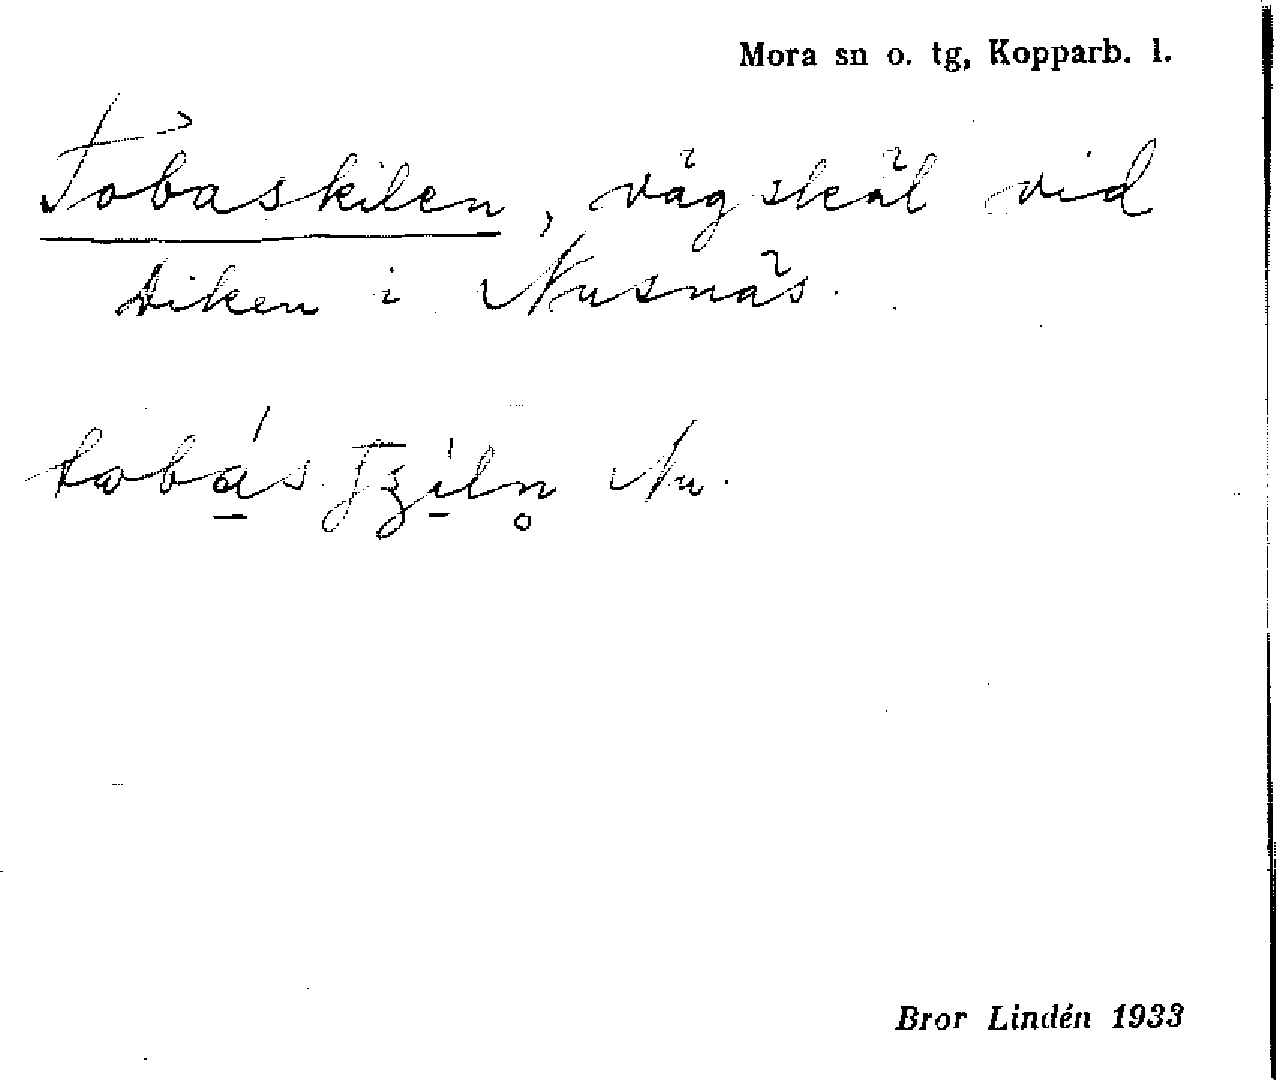 Mora sn o. tg, Kopparb. l.
Tobaskilen, vägskäl vid
diken i Nusnäs.
Nu.
Bror Lindén 1933